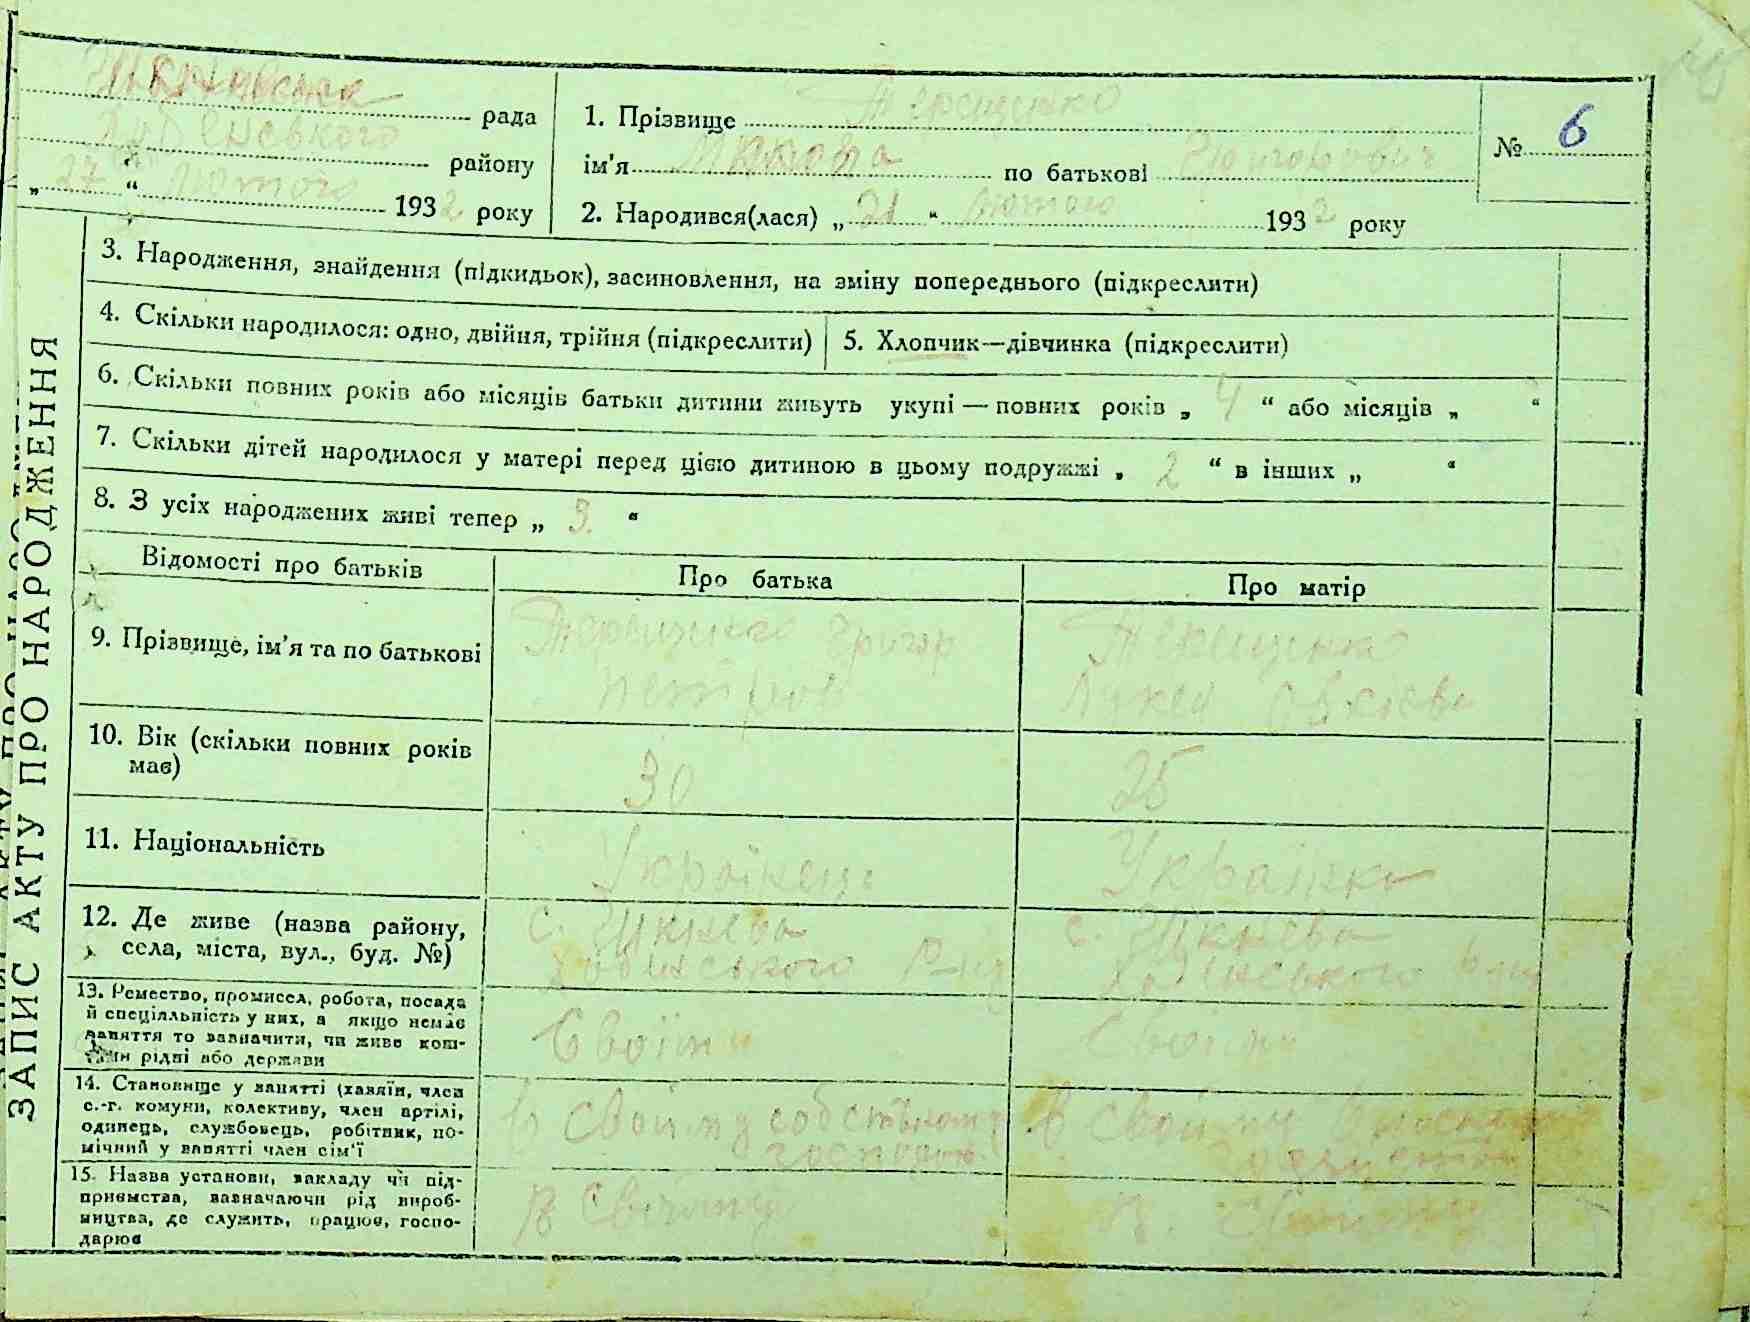 рада
Лубенського району
„ 27 “ лютого 1932 року
1. Прізвище Терещенко
ім'я Микола по батькові Григорович
2. Народився(лася) „ 21 “ лютого 1932 року
№ 6
ЗАПИС АКТУ ПРО НАРОДЖЕННЯ
3. Народження, знайдення (підкидьок), засиновлення, на зміну попереднього (підкреслити)
4. Скільки народилося: одно, двійня, трійня (підкреслити)
5. Хлопчик—дівчинка (підкреслити)
6. Скільки повних років або місяців батьки дитини живуть укупі — повних років „ 4 “ або місяців „ “
7. Скільки дітей народилося у матері перед цією дитиною в цьому подружжі „ 2 “ в інших „ “
8. З усіх народжених живі тепер „ 3 “
Відомості про батьків
Про батька
Про матір
9. Прізвище, ім'я та по батькові
Терещенко Григор
Петров
Терещенко
10. Вік (скільки повних років
має)
30
25
11. Національність
Українець
Українка
12. Де живе (назва району,
села, міста, вул., буд. №)
с.
Лубенського Р-ну
с.
Лубенського
13. Ремество, промисел, робота, посада
й спеціяльність у них, а якщо немає
заняття то зазначити, чи живе кош-
тами рідні або держави
Своїми
Своїми
14. Становище у занятті (хазяїн, член
с.-г. комуни, колективу, член артілі,
одинець, службовець, робітник, по-
мічний у занятті член сім'ї
В своїму собственому
В своїму
15. Назва установи, закладу чи під-
приємства, зазначаючи рід вироб-
ництва, де служить, працює, госпо-
дарює
В
В.